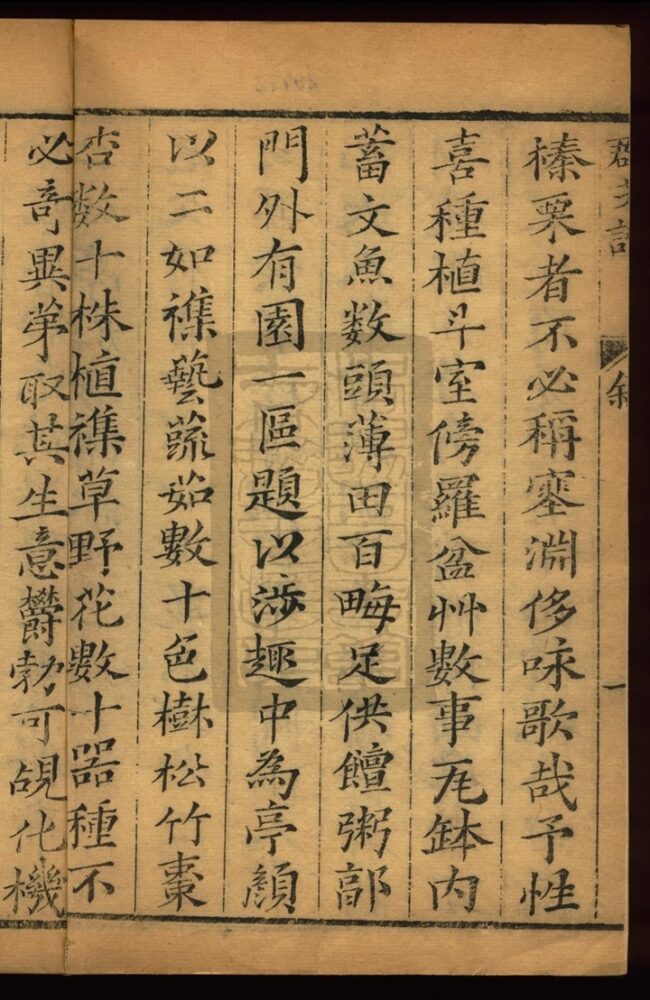 群芳譜 敘 一
榛栗者不必稱塞淵侈咏歌哉予性
喜種植斗室傍羅盆艸數事瓦鉢内
蓄文魚數頭薄田百畮足供饘粥郭
門外有園一區題以涉趣中為亭顏
以二如襍藝蔬茹數十色樹松竹棗
杏数十株植襍草野花數十器種不
必奇異苐取其生意欝勃可覘化機